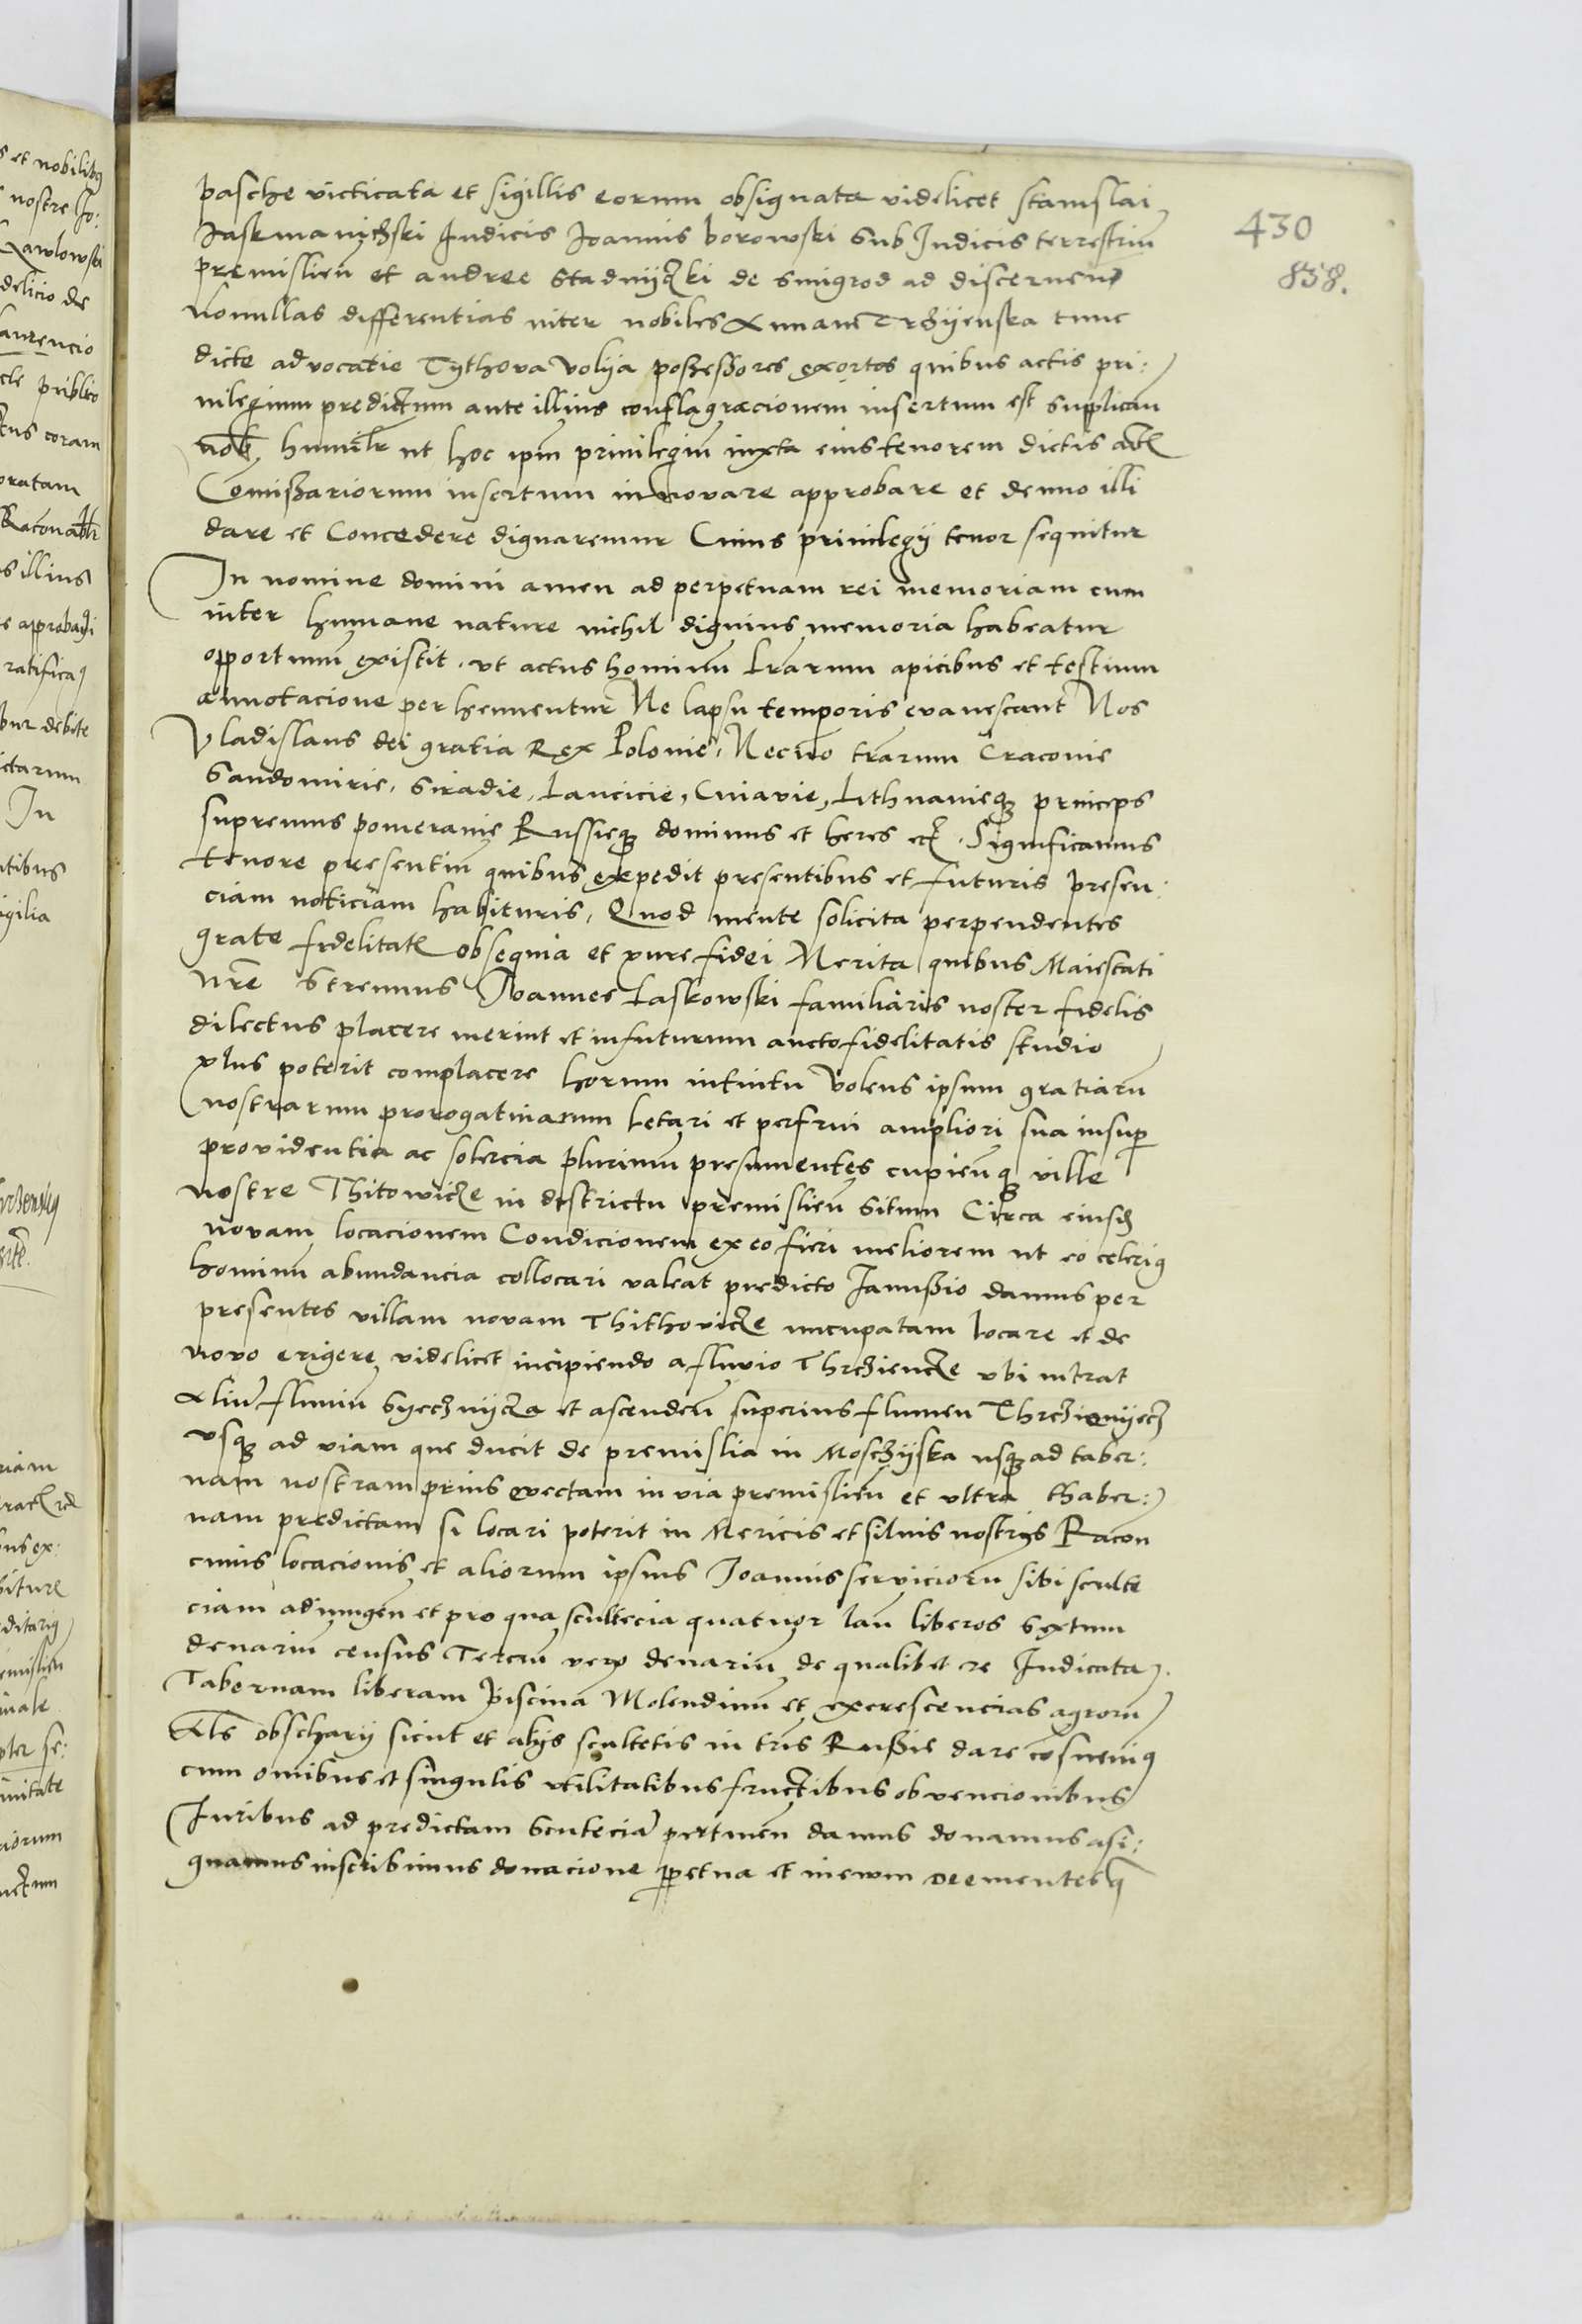 430
858.
pasche victicata et sigillis eorum obsignata videlicet stanislai
Jaskmanitzski Judicis Joannis borowski Sub Judicis terrestriũ
premislieñ et andree Stadnijczki de Smigrod ad discernend
nõnullas differentias inter nobiles Annam Trzyenska tunc
dicte advocatie Tythova volija possessores exortas quibus actis pri:
uilegium predictum ante illius conflagracionem insertum est supplican
nob humilr ut hoc ipm priuilegiũ iuxta eius tenorem dictis act
Comissariorum insertum innovare approbare et denuo illi
dare et Concedere dignaremur Cuius priuilegij tenor sequitur
In nomine domini amen ad perpetuam rei memoriam cum
inter humane nature nichil dignius memoria habeatur
opportunũ existit. ut actus hominũ Lrarum apicibus et testium
annotacione perhennentur Ne lapsu temporis evanescant Nos
Vladislaus dei gratia Rex Polonie, Necno trarum Craconie
Sandomirie, Siradie, Lancicie, Cuiavie, Lithuanieq princeps
supremus pomeranie Russieq dominus et heres etc. Significamus
tenore presentiũ quibus expedit presentibus et futuris presen:
ciam noticiam habituris, Quod mente solicita perpendentes
grate fidelitat obsequia et pure fidei Merita quibus Maiestati
nrẽ Strenuus Joannes Laskowski familiaris noster fidelis
dilectus placere meruit et in futurum aucto fidelitatis studio
plus poterit complacere horum intuitu Volens ipsum gratiarũ
nostrarum prerogatiuarum Letari et perfrui ampliori sua insup
providentia ac solercia plurimũ presumentes cupienq ville
nostre Thitowicze in districtu premislieñ Situm Circa eiusd
novam locacionem Condicionem ex eo fieri meliorem ut eo celerig
hominũ abundancia collocari valeat predicto Janussio damus per
presentes villam novam Thithovicze nncupatam locare et de
novo erigere videlicet incipiendo a fluvio Thrziencze ubi intrat
Aliũ fluuiũ Syecznijcza et ascendeñ superius flumen
usq ad viam que ducit de premislia in Moschijska usq ad taber:
nam nostram prius erectam in via premislieñ et ultra thaber:
nam predictam si locari poterit in Mericis et siluis nostris Racon
cuius locacionis et aliorum ipsius Joannis serviciorũ sibi sculte
ciam adiungeñ et pro qua scultecia quatuor lan liberos Sextum
denariũ census Terciũ vero denariũ de qualibet re Judicata.
Tabernam liberam piscina Molendinũ et excrescencias agrorũ
Als obschary sicut et alijs scultetis in tris Russie dare cosueuiq
cum omibus et singulis utilitatibus fructibus obvencionibus
Juribus ad predictam Scuteciã pertineñ damus donamus asi:
gnamus inscribimus donacione ppetua et in ewm